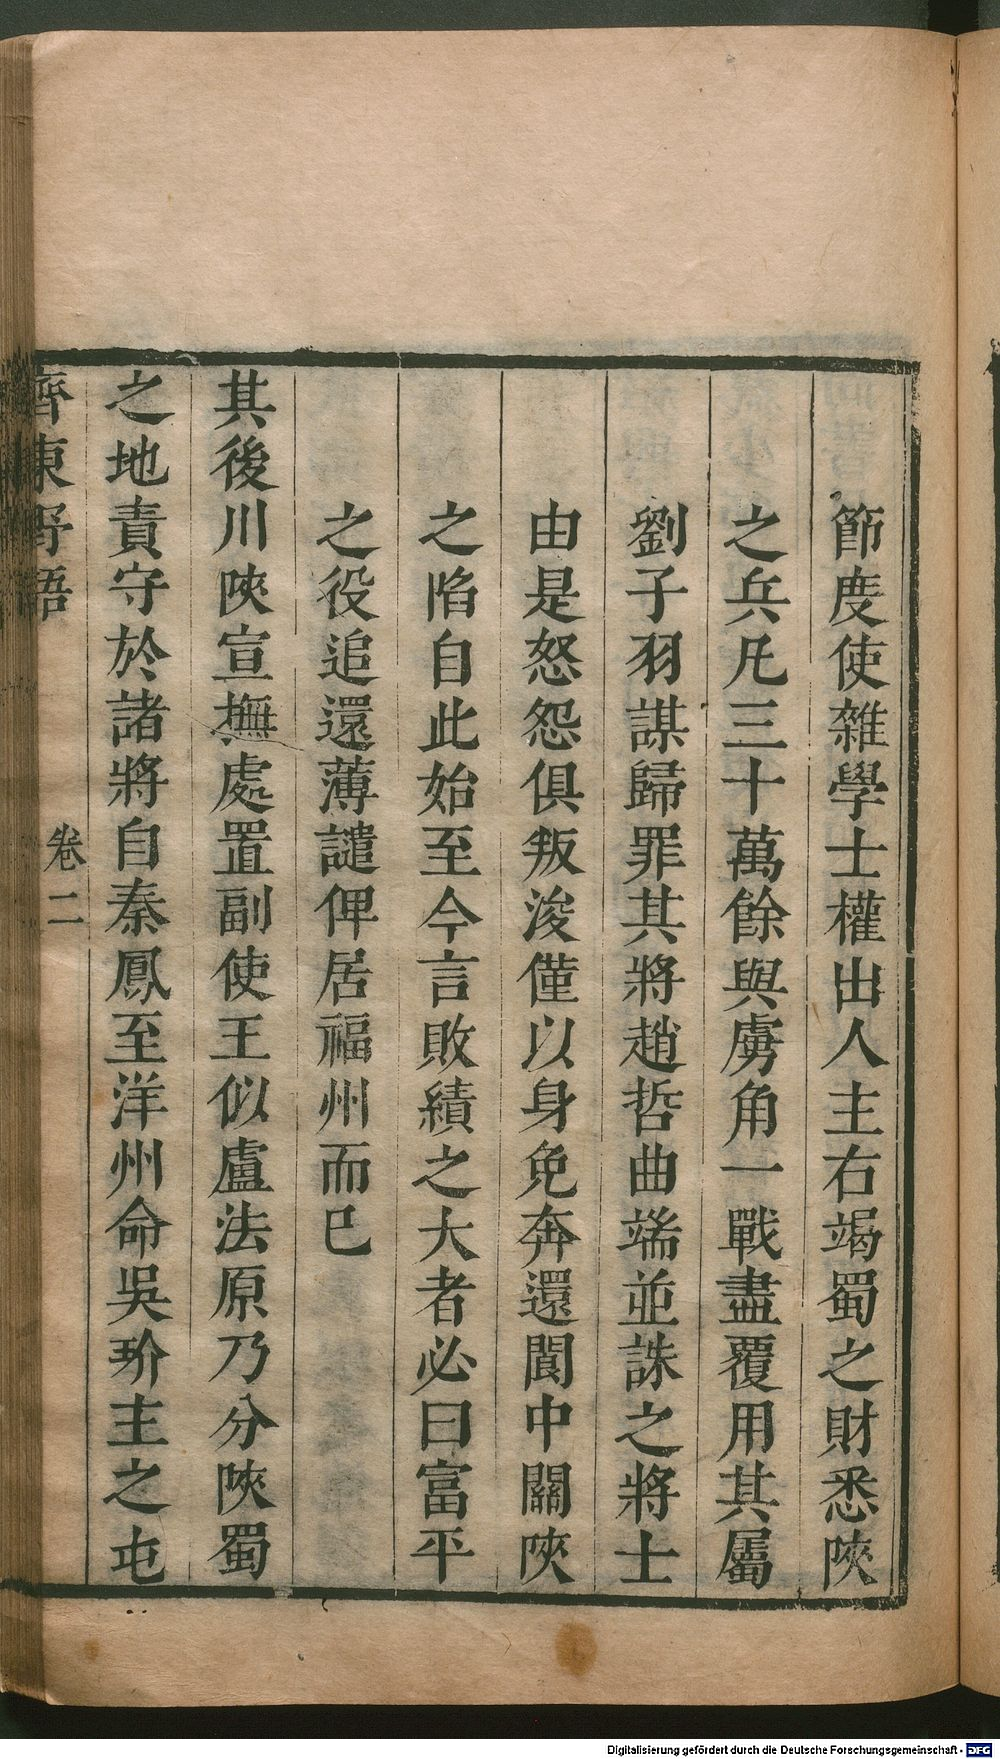 節度使雜學士權出人主右竭蜀之財悉陝
之兵凡三十萬餘與虜角一戰盡覆用其屬
劉子羽謀歸罪其將趙哲曲端並誅之將士
由是怒怨俱叛浚僅以身免奔還閬中關陝
之陷自此始至今言敗績之大者必曰富平
之役追還薄譴俾居福州而已
其後川陝宣撫處置副使王似盧法原乃分陝蜀
之地責守於諸將自秦鳳至洋州命吳玠主之屯
齊東野語
卷二
Digitalisierung gefördert durch die Deutsche Forschungsgemeinschaft - DFG